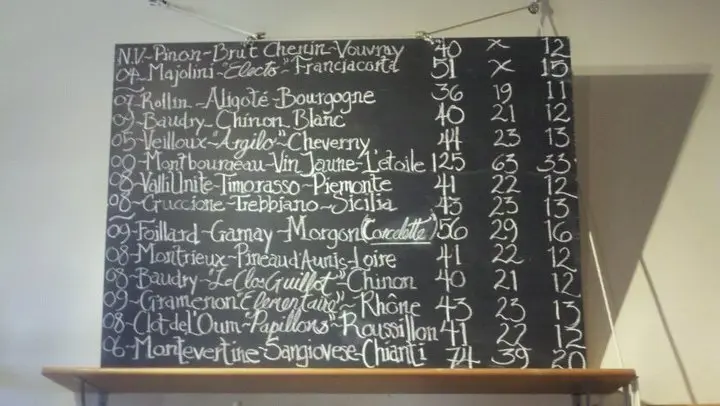 N.V.-Pinon-Brut Chenin-Vouvray 40 x 12
04-Majolini-"Electo"-Franciacorta 51 x 15
~
07-Rollin-Aligoté-Bourgogne 36 19 11
09-Baudry-Chinon Blanc 40 21 12
05-Veilloux-"Argilo"-Cheverny 44 23 13
00-Montbourgeau-Vin Jaune-L'étoile 125 63 33
08-Valli Unite-Timorasso-Piemonte 41 22 12
08-Gruccione-Trebbiano-Sicilia 43 23 13
~
09-Foillard-Gamay-Morgon (Corcelette) 56 29 16
08-Montrieux-Pineau d'Aunis-Loire 41 22 12
08-Baudry-"Le Clos Guillot"-Chinon 40 21 12
09-Gramenon "Elementaire"-Rhône 43 23 13
08-Clot de L'Oum-"Papillons"-Roussillon 41 22 12
06-Montevertine-Sangiovese-Chianti 74 39 20